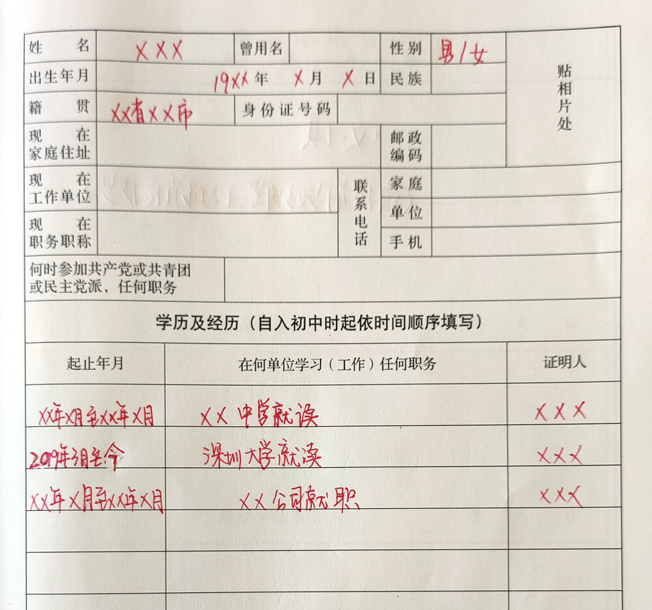 姓 名 XXX 曾用名 性别 男/女
贴相片处
出生年月 19XX年 X月 X日 民族
籍 贯 XX省XX市 身份证号码
现 在 家庭住址 邮政编码
现 在 工作单位 联系电话 家庭
单位
现 在 职务职称 手机
何时参加共产党或共青团
或民主党派,任何职务
学历及经历(自入初中时起依时间顺序填写)
起止年月 在何单位学习(工作)任何职务 证明人
XX年X月至XX年X月 XX 中学就读 XXX
2019年3月至今 深圳大学就读 XXX
XX年X月至XX年X月 XX公司就职 XXX